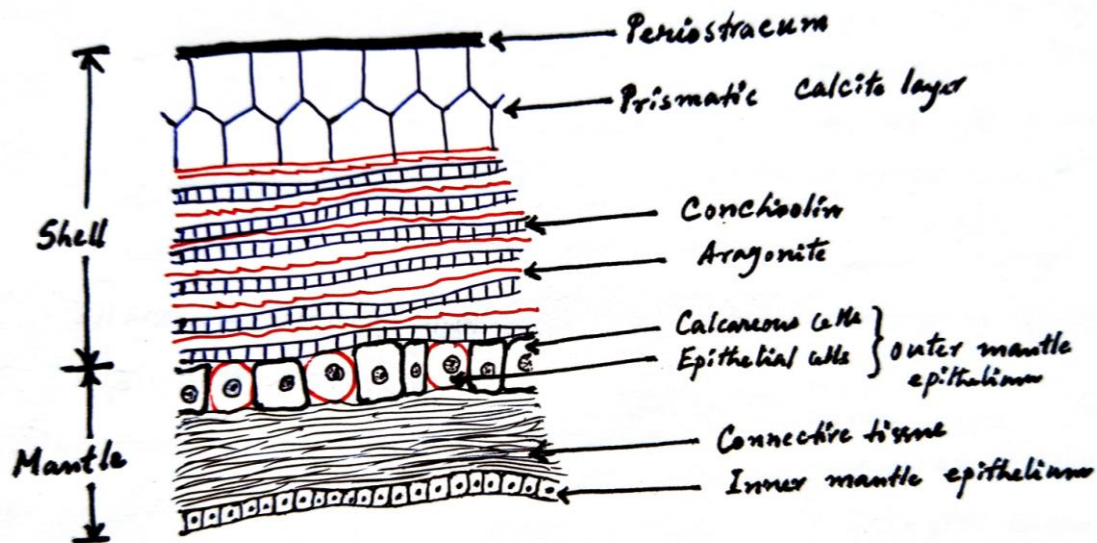 Periostracum
Prismatic calcite layer
Shell
Conchiolin
Aragonite
Calcareous cells
Epithelial cells
outer mantle
epithelium
Mantle
Connective tissue
Inner mantle epithelium